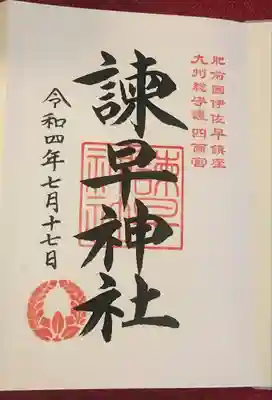 肥前國伊佐早鎮座
九州総守護四面宮
諫早神社
諫早神社
令和四年七月十七日